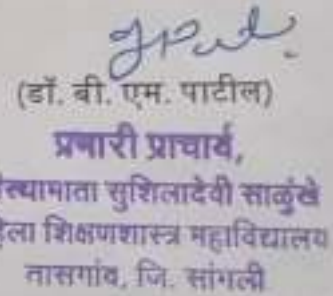 (डॉ. बी. एम. पाटील)
प्रभारी प्राचार्य,
स्थामाता सुशिलादेवी साळुंखे
हेला शिक्षणशास्त्र महाविद्यालय
तासगांव, जि. सांगली